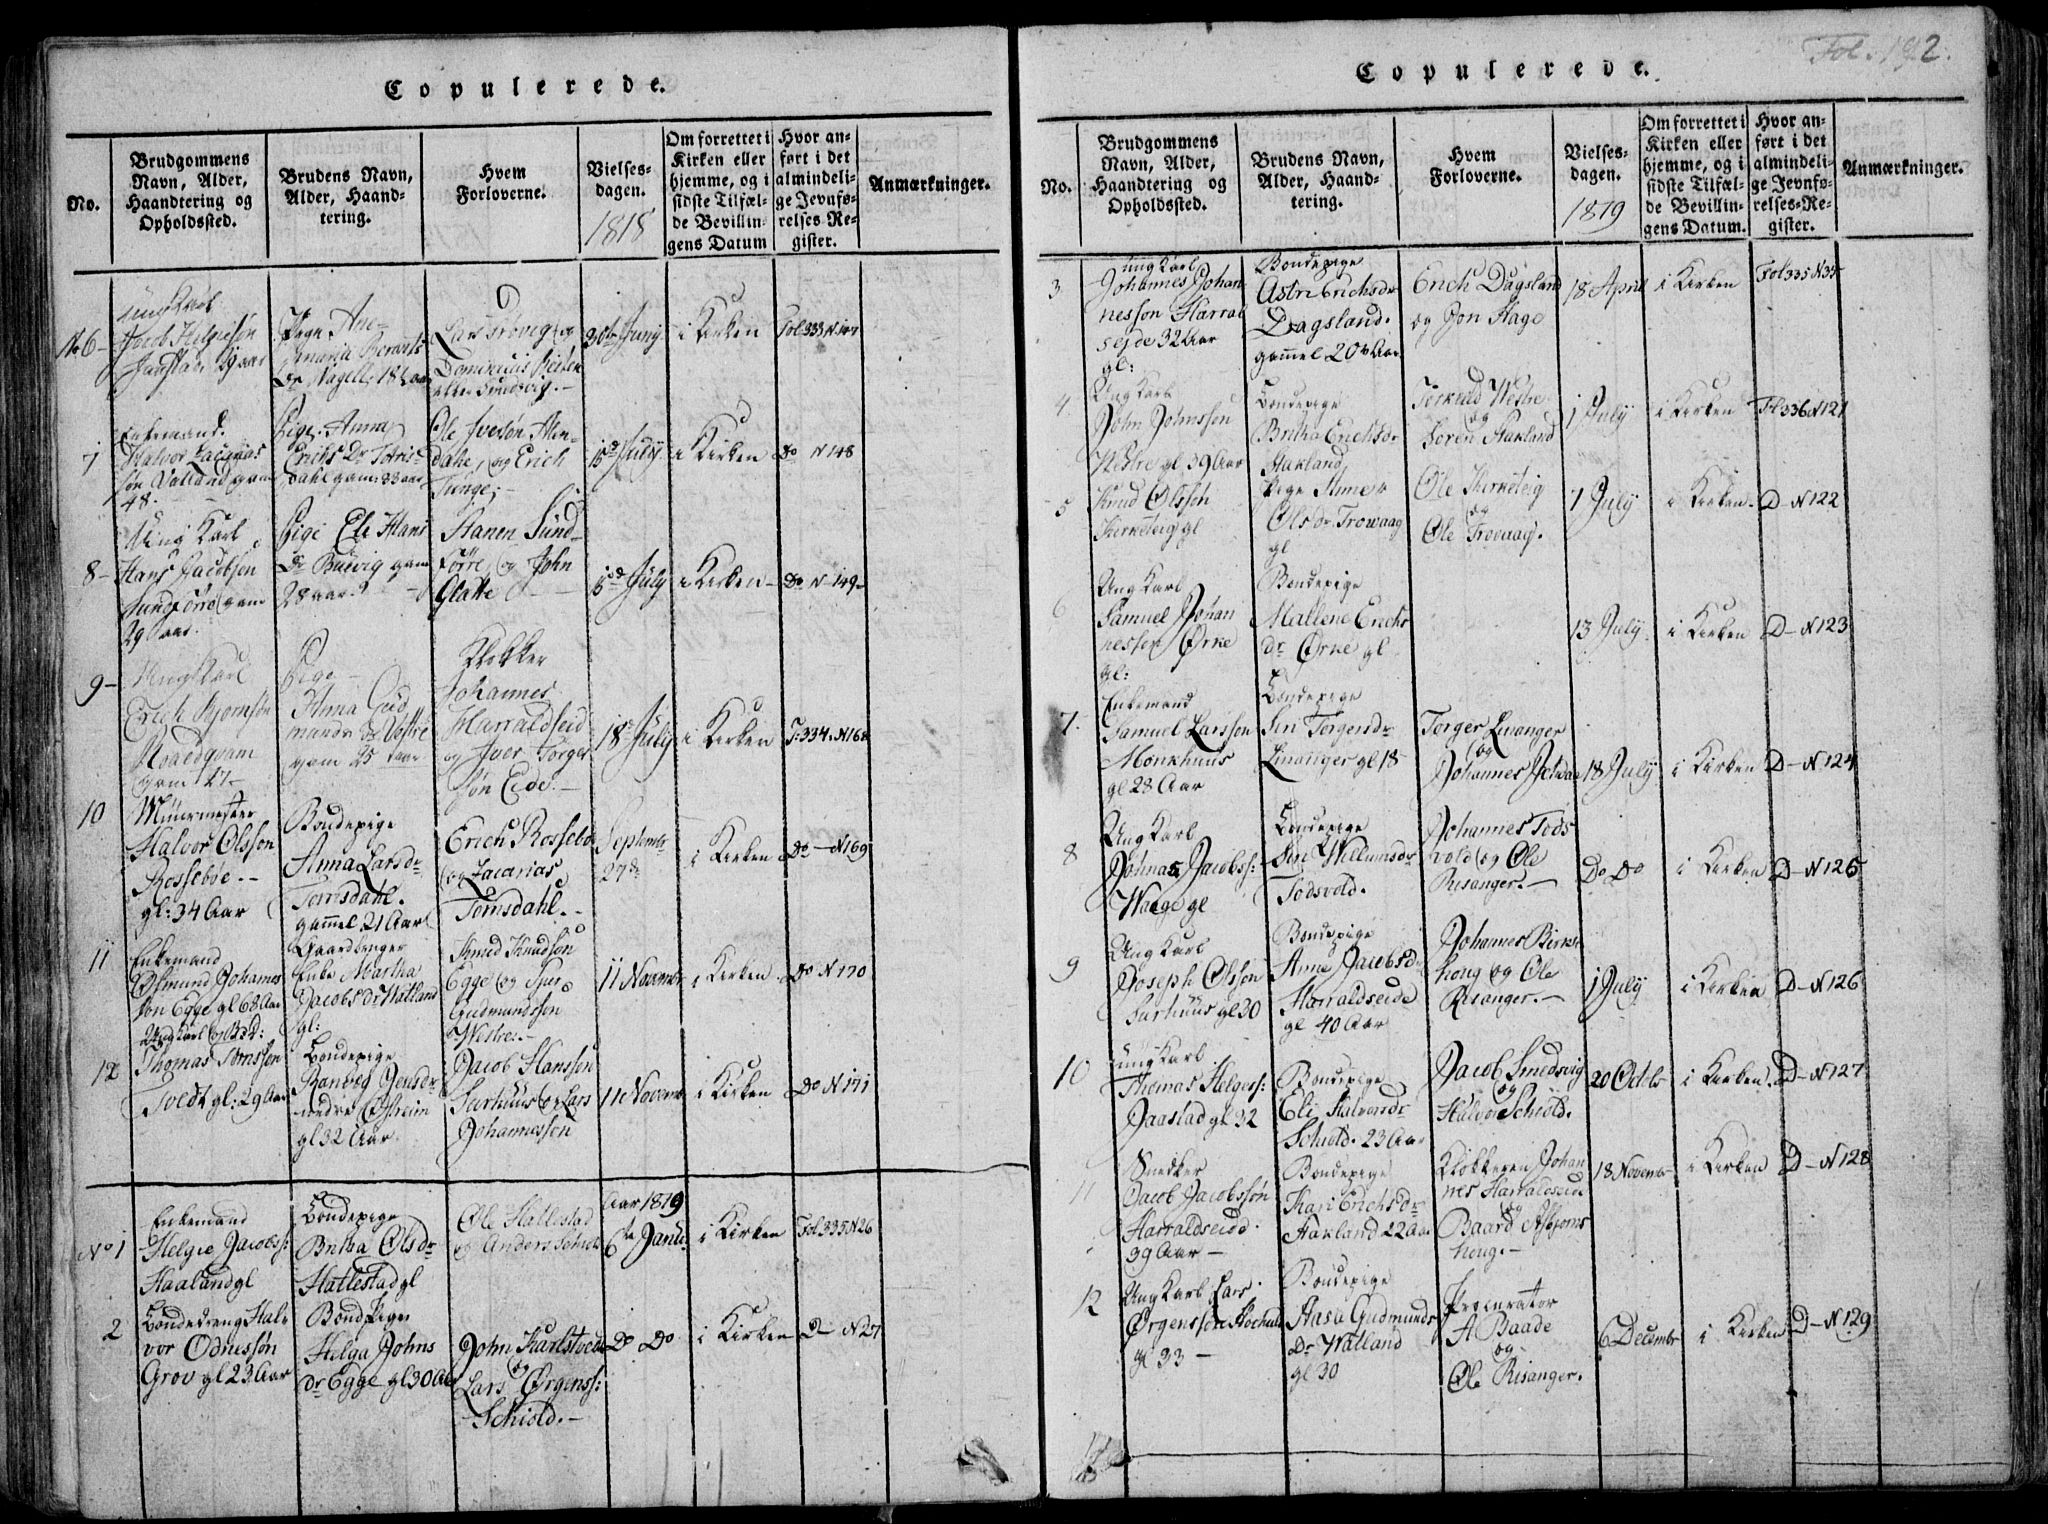 Copulerede.
No.
Brudgommens Navn, Alder, Haandtering og Opholdssted.
Brudens Navn, Alder, Haandtering.
Hvem Forloverne.
Vielsesdagen.
1818
Om forrettet i Kirken eller hjemme, og i sidste Tilfælde Bevillingens Datum
Hvor anført i det almindelige Jevnførelses-Register.
Anmærkninger.
No 6-
Ungkarl
Jacob Helgesøn
29 aar
Pige Ane
maria Berents
Dr Nagell, 18½ aar
Lars Brøvig og
Dominicus
Smedsvig.-
30te Juny
i Kirken
Fol 333 N 147
7
Enkemand.
Halvor Zacarias
søn Valland gam
48-
Pige Anna
Erichs Dr
dahl gam: 33 aar
Ole Iversøn
dahl, og Erich
Tunge;-
15de July
i Kirken
Do N 148
8-
Ung Karl
Hans Jacobsen
Sundførre gam
29 aar.
Pige Eli Hans
Dr Buevig gam
28 aar
Hanen Sund-
førre, og John
Glatte
15de July
i Kirken-
Do N 149-
9-
Ungkarl
Erich Biørnsøn
gam 47-
Pige-
Anna Gud
mands Dr Vestre
gam 25 aar
Klokker
Johannes
Harraldseid
og Iver Torger
søn Eide.-
18de July
i Kirken
F. 334. N 168
10
Muurmester
Halvor Olsson
Rossebøe.-
gl: 34 Aar
Bondepige
Anna Larsdr
Tomsdahl.
gammel 21 Aar
Erich Rossebø
og Zacarias
Tomsdahl.-
Septembr
27de
i Kirken
Do-N 169
11
Enkemand
Osmund Johannes
søn Egge gl 68 Aar
Gaardbruger
Enke Martha
Jacobs Dr Watland
gl:
Knud Knudson
Egge og Siur
Gudmundsson
Westre.-
11 Novembr
i Kirken
Do N 170
12
Ungkarl og Bsk:
Thomas Tomsson
Tvedt gl: 29 Aar
Bondepige
Ranveg Jensdr
nedre Østreim
gl 32 Aar.
Jacob Hansson
Sørhuus og Lars
Johannesson
11 Novembr
i Kirken
Do N 171
Aar 1819
No 1
Enkemand
Helgie Jacobss:
Haaland gl
Bondepige
Britha Olsdr
Hallestad gl
Ole Hallestad
og Anders Schiold
6te Janu:
i Kirken
Fol 335 N 26
2
Bondedreng Hal-
vor Odnessøn
Grov gl 23 Aar
Bondepige
Helga Johns
dr Egge gl 30 Aar
John Karlstved
og
Lars Ørgenss:
Schiold.-
Do Do
i Kirken
D- N 27
Fol. 192.
Copulerede.
No.
Brudgommens Navn, Alder, Haandtering og Opholdssted.
Brudens Navn, Alder, Haandtering.
Hvem Forloverne.
Vielsesdagen.
1819
Om forrettet i Kirken eller hjemme, og i sidste Tilfælde Bevillingens Datum.
Hvor anført i det almindelige Jevnførelses-Register.
Anmærkninger.
3
Ungkarl
Johannes Johan
nesson Harral
sejde 32 Aar
gl:
Bondepige
Astri Erichsdr
Dagsland.
gammel 20 Aar
Erich Dagsland
og Jon Hage
18 April
i Kirken
Fol 335 N 35
4
Ung Karl
John Johnsson
Westre gl 39 Aar
Bondepige
Britha Erichsdr
Hakland
Torkild Westre
og
Søren Hakland
1 July
i Kirken
Fl 336 N 121
5
Knud Olsson
Kirketeig gl
Pige Anne
Olsdr Trowaag
gl
Ole Kirketeig
og
Ole Trovaag.
7 July
i Kirken.
D-N 122
6
Ung Karl
Samuel Johan
nesson Ørke
gl:
Bondepige
Mallene Erichs
dr Ørke gl
13 July
i Kirken
D-N 123
7
Enkemand
Samuel Larsson
Monkhuus
gl 28 Aar
Bondepige
Siri Torgersdr
Liranger gl 18
Torger Liranger
og
Johannes
18 July
i Kirken
D-N 124
8
Ung Karl
Johnas Jacobss:
Waage gl
Bondepige
Siri Willumsdr
Todsvold.
Johannes Tods
vold og Ole
Risanger.-
Do Do
i Kirken
D-N 125
9
Ung Karl
Joseph Olsson
Sørhuus gl 30
Bondepige
Anne Jacobsdr
Harraldseide
gl 40 Aar
Johannes Birke
houg og Ole
Risanger.-
1 July
i Kirken
D-N 126
10
Ung Karl
Thomas Helgess:
Jaastad gl 32
Bondepige
Eli Halvorsdr
Schiold. 23 Aar
Jacob Smedsvig
og
Halvor Schiold.
20 Octbr
i Kirken.
D-N 127
11
Snedker
Jacob Jacobsson
Harraldseide.
39 Aar-
Bondepige
Kari Erichsdr
Hakland 22 Aar
Klokkeren Johan
nes Harraldseide
og
Baard Asbjørns
houg.-
18 Novembr
i Kirken
D-N 128
12
Ung Karl Lars
Ørgensson
gl 33-
Bondepige
Aasa Gudmunds
Dr Watland
gl 30
Procurator
A Baade
og
Ole Risanger.
6 Decembr
i Kirken
D-N 129